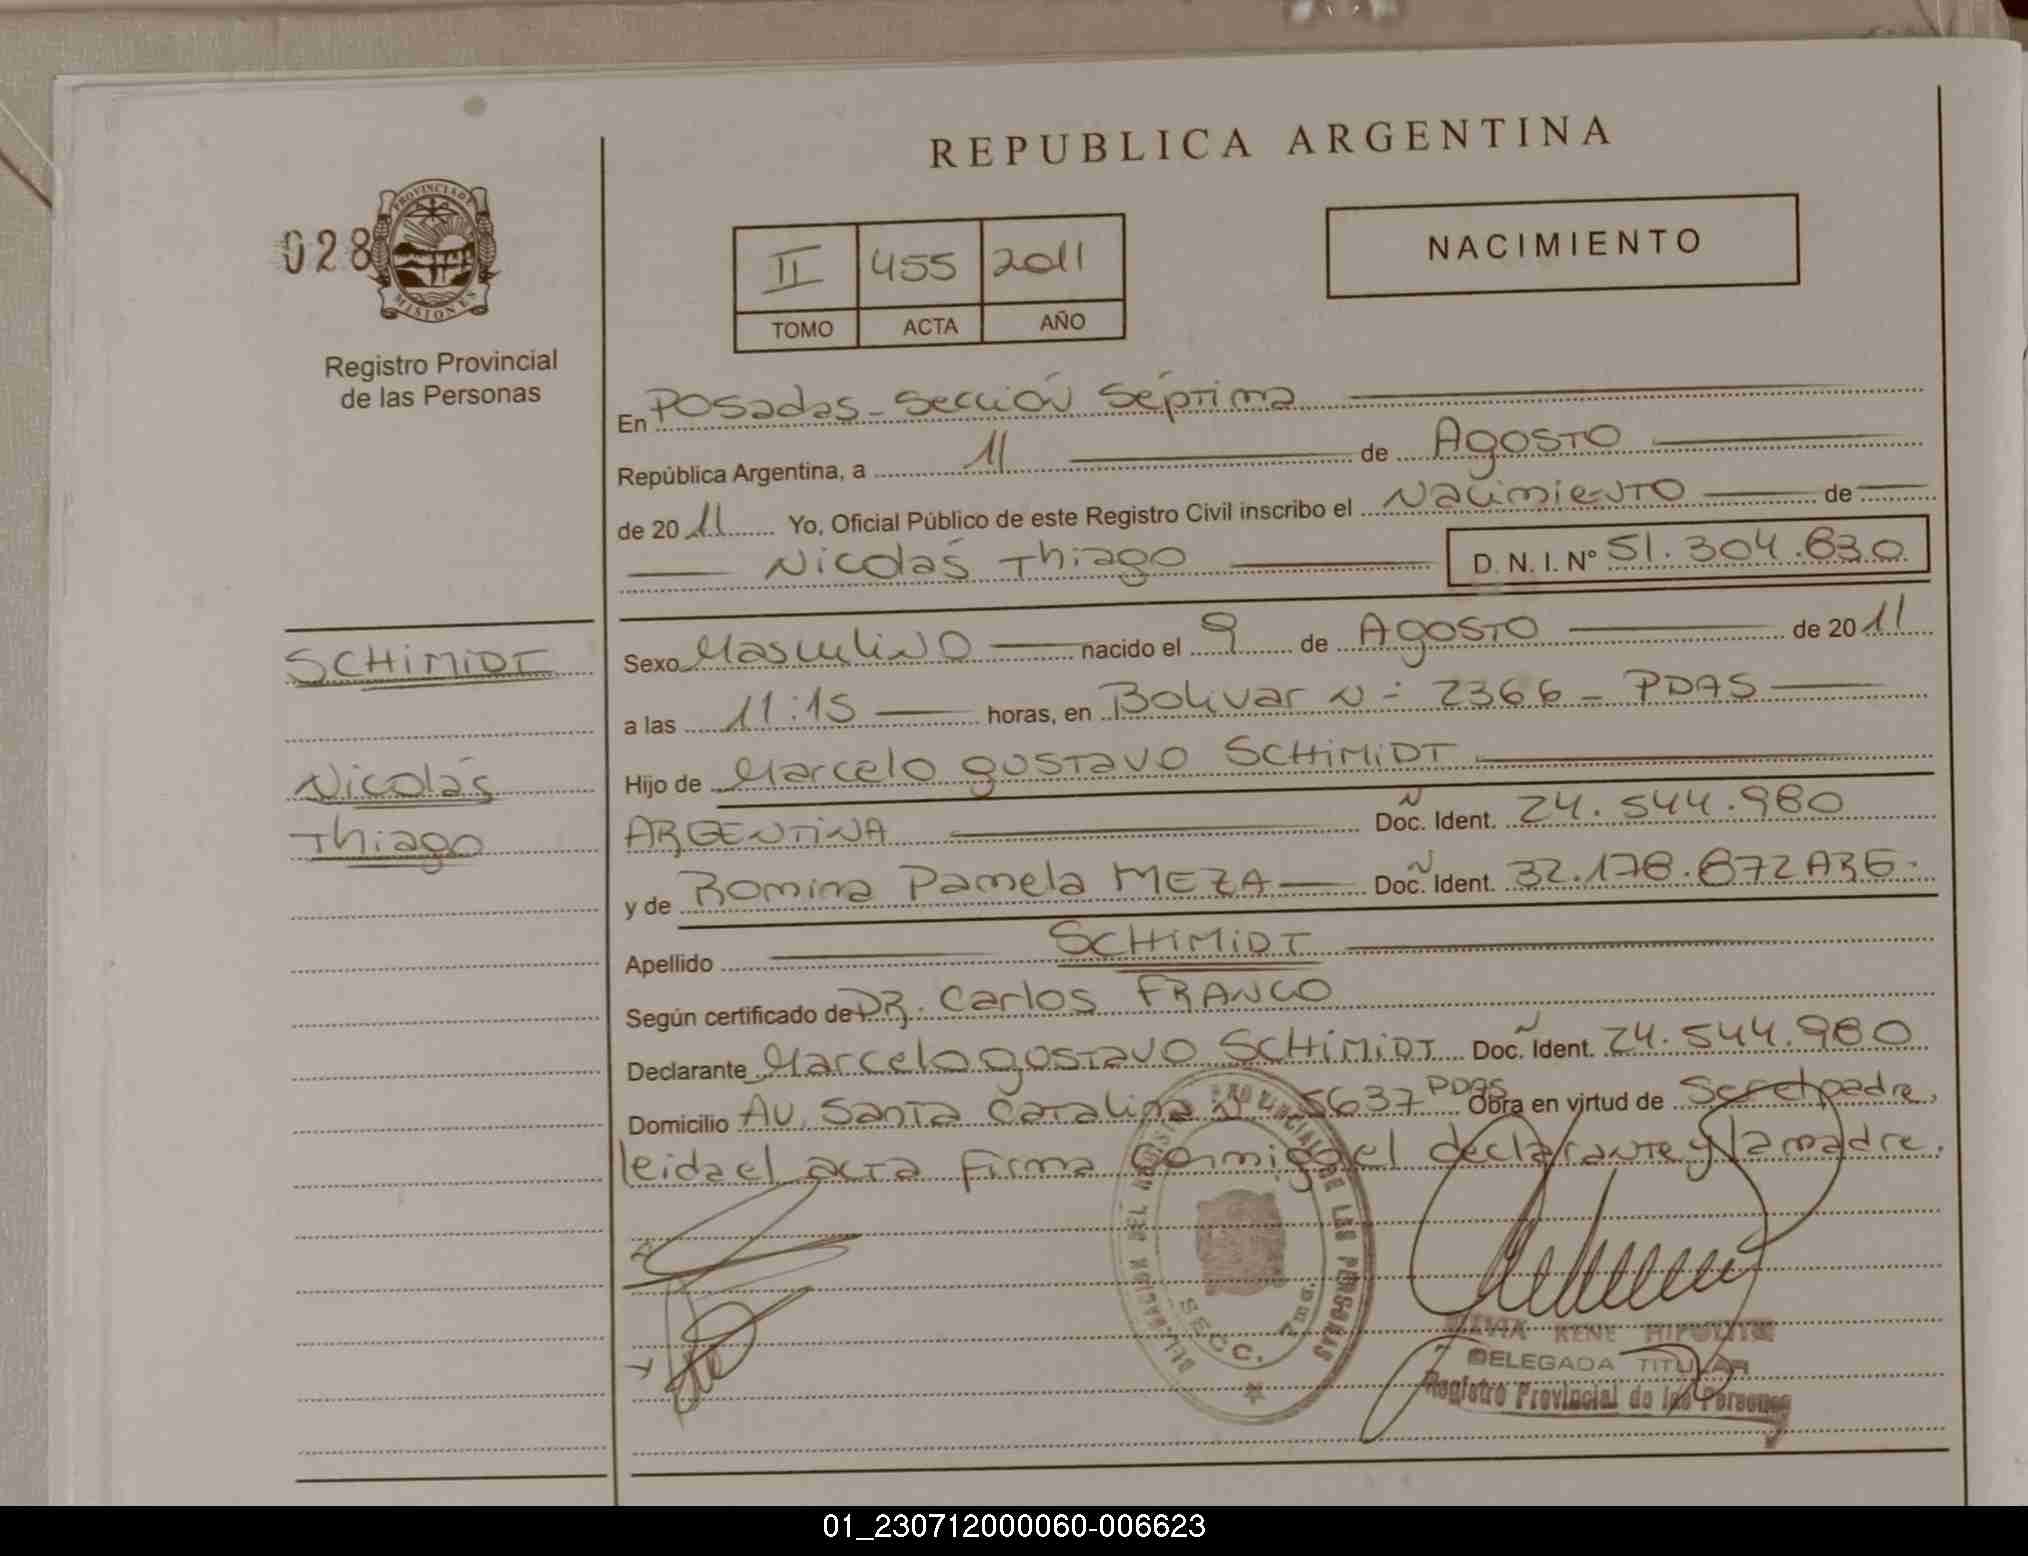 REPUBLICA ARGENTINA
028
PROVINCIA DE MISIONES
Registro Provincial
de las Personas
II 455 2011
TOMO ACTA AÑO
NACIMIENTO
En Posadas - Sección Séptima
República Argentina, a 11 de Agosto
de 2011 Yo, Oficial Público de este Registro Civil inscribo el Nacimiento de
Nicolás Thiago D. N. I. Nº 51.304.630
SCHIMIDT
Nicolás
Thiago
Sexo Masculino nacido el 9 de Agosto de 2011
a las 11:15 horas, en Bolivar Nº 2366 - PDAS
Hijo de Marcelo Gustavo SCHIMIDT
ARGENTINA Doc. Ident. 24.544.980
y de Romina Pamela MEZA Doc. Ident. 32.178.872 ARG.
Apellido SCHIMIDT
Según certificado de DR. Carlos FRANCO
Declarante Marcelo Gustavo SCHIMIDT Doc. Ident. 24.544.980
Domicilio Av. Santa Catalina Nº 5637 PDAS Obra en virtud de Ser el padre,
leida el acta firma conmigo el declarante y la madre.
DELEGACION DEL REGISTRO PROVINCIAL DE LAS PERSONAS
SECC.
RENE HIPOLITO
DELEGADA TITULAR
Registro Provincial de las Personas
01_230712000060-006623